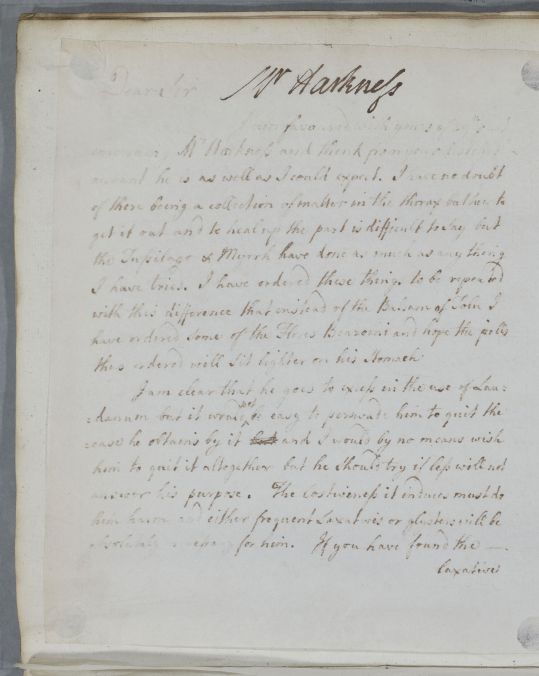 Dear Sir Mr Harkness
I was favoured with yours of
concerning Mr Harkness and think from your
account he is as well as I could expect. I have no doubt
of there being a collection of matter in the thorax but how to
get it out and to heal up the part is difficult to say but
the Tussilago & Myrrh have done as much as any thing
I have tried. I have ordered these things to be repeated
with this difference that instead of the Balsam of Tolu I
have ordered some of the Flores Benzoini and hope the pills
thus ordered will sit lighter on his Stomach
I am clear that he goes to excess in the use of Lau-
-danum but it would not be easy to persuade him to quit the
ease he obtains by it and I would by no means wish
him to quit it altogether but he should try if less will not
answer his purpose. The Costiveness it induces must do
him harm and either frequent Laxatives or glysters will be
absolutely necessary for him. If you have found the
laxative